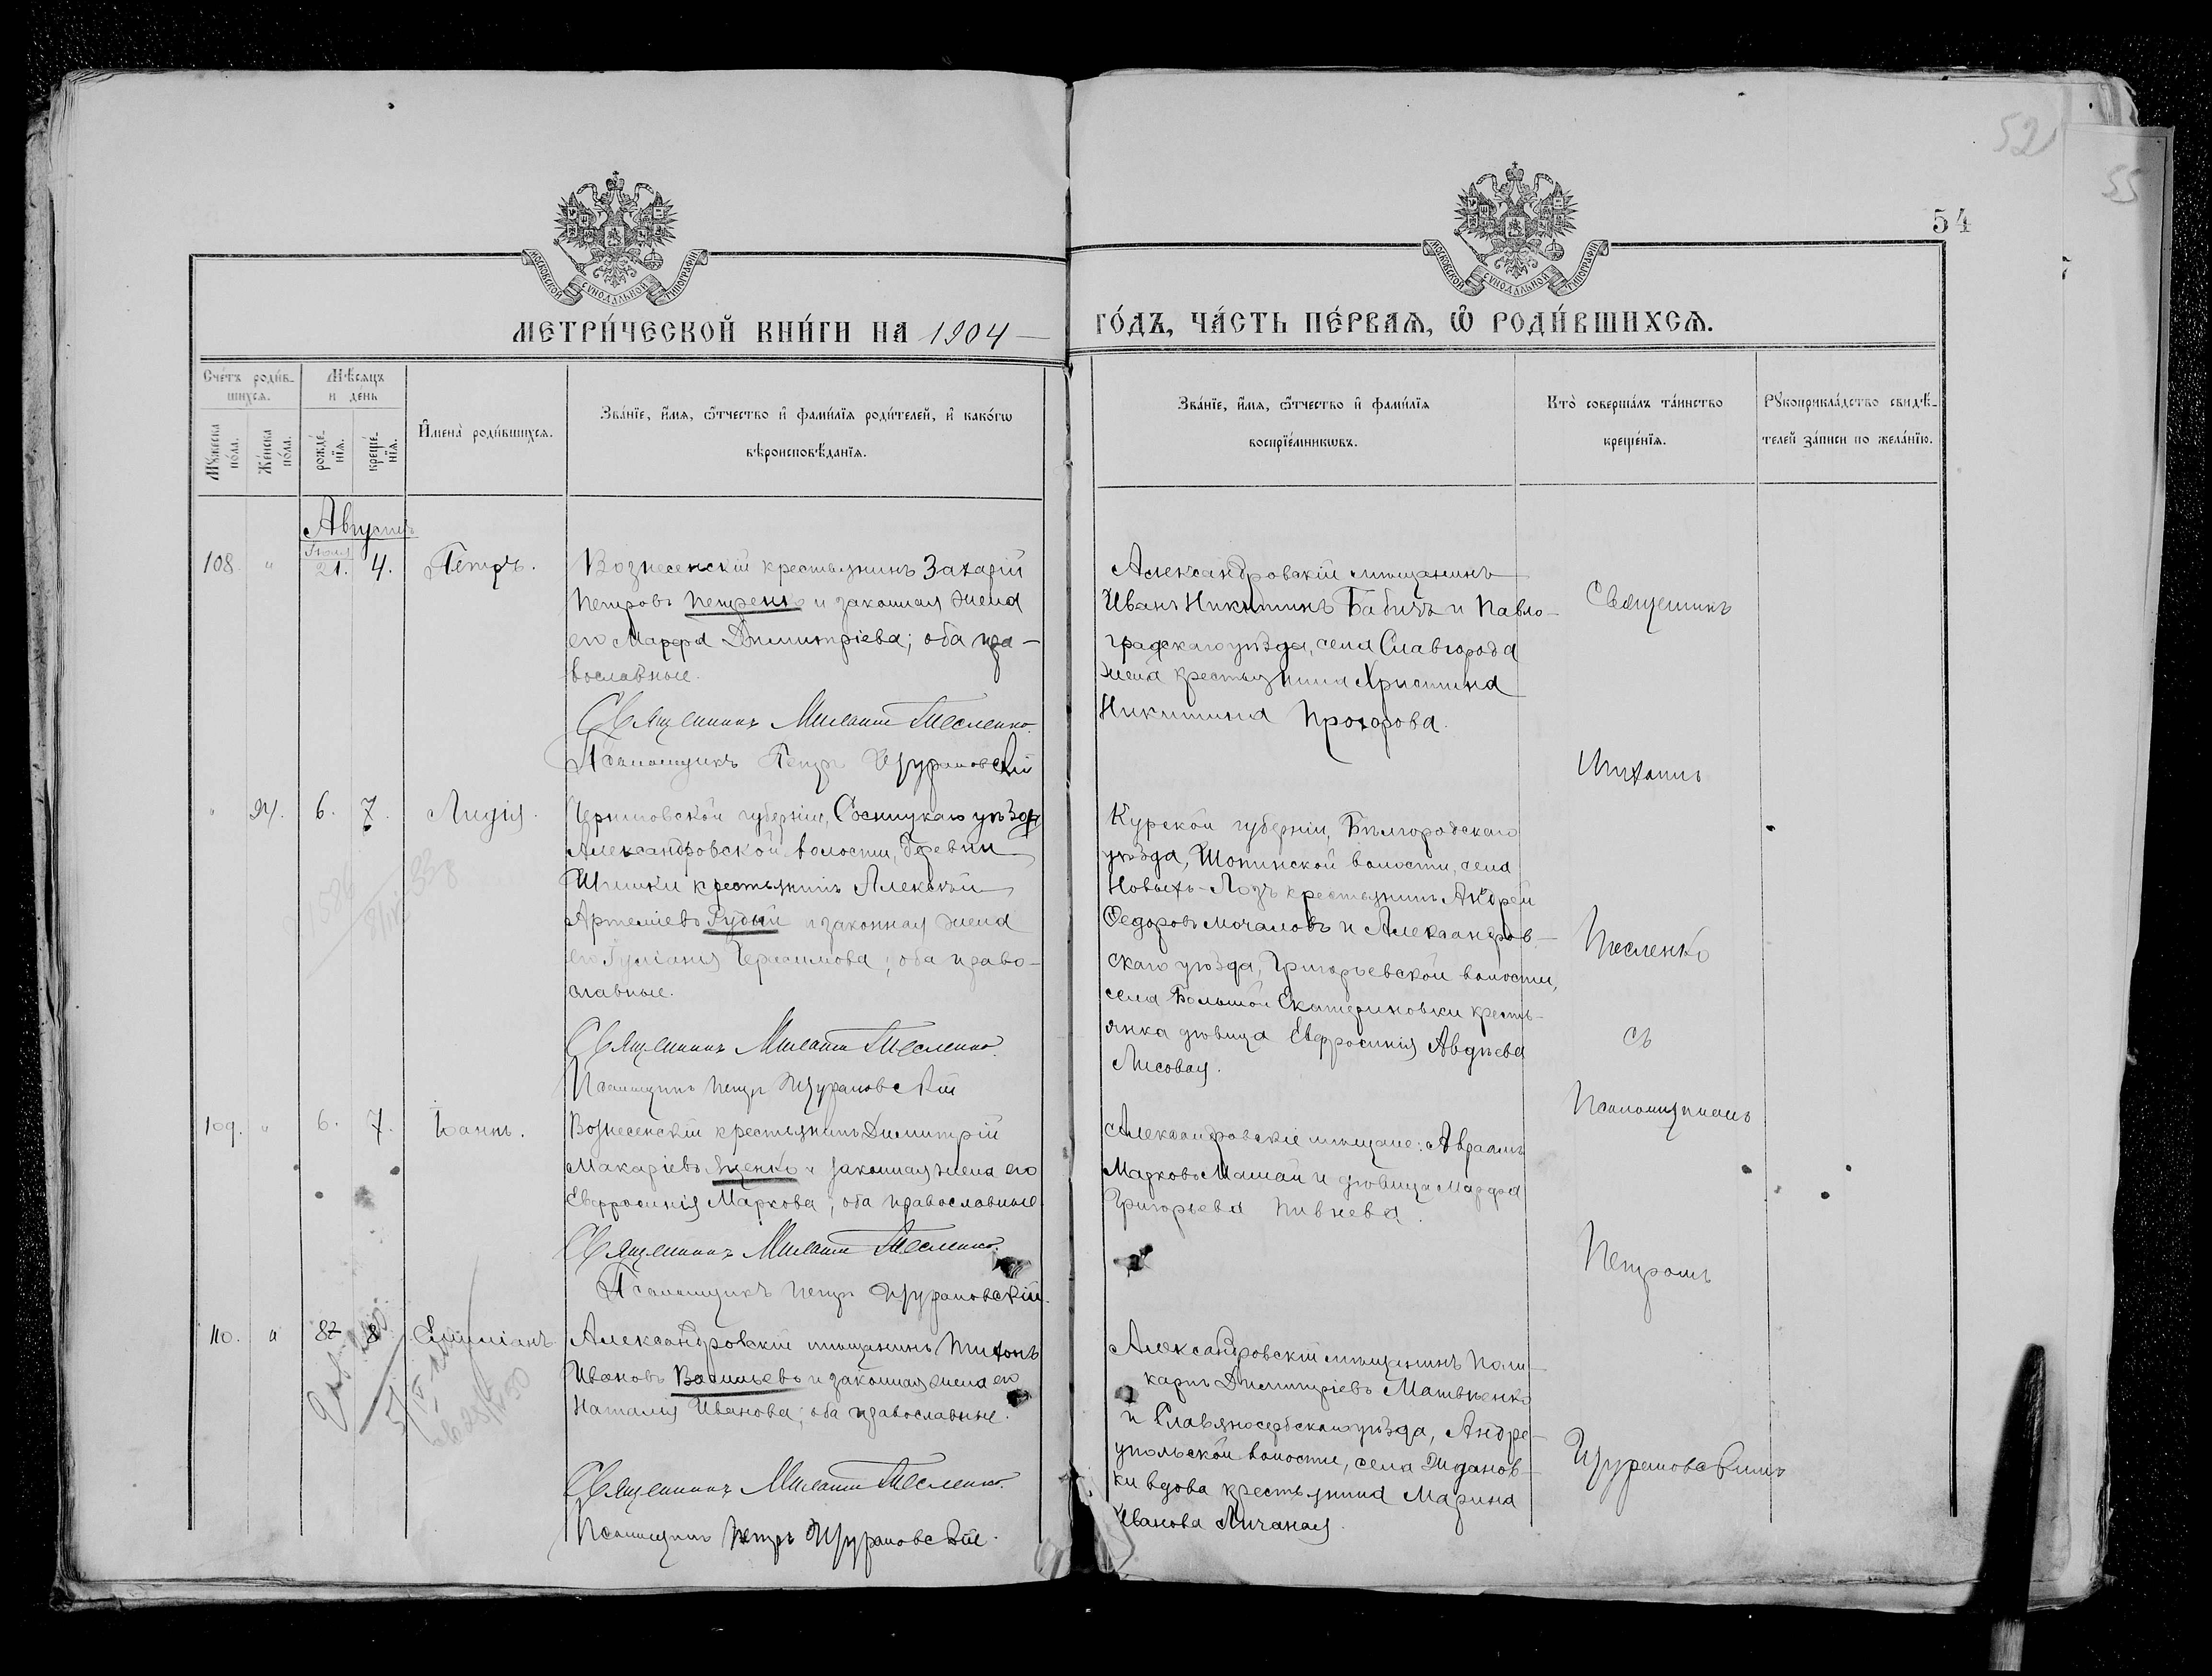 52
55
54
МОСКОВСКОЙ СѴНОДАЛЬНОЙ ТИПОГРАФІИ
МОСКОВСКОЙ СѴНОДАЛЬНОЙ ТИПОГРАФІИ
МЕТРИ́ЧЕСКОЙ КНИ́ГИ НА 1904 —
ГО́ДЪ, ЧА́СТЬ ПЕ́РВАѦ, Ѡ҆ РОДИ́ВШИХСѦ.
Сче́тъ роди́в-
шихсѧ.
Мѣ́сѧцъ
и де́нь
Мꙋ́жеска
по́ла.
Же́нска
по́ла.
рожде́-
нїѧ.
креще́-
нїѧ.
И҆мена̀ роди́вшихсѧ.
Зва́нїе, и҆́мѧ, ѻ҆́тчество и҆ фами́лїѧ роди́телей, и҆ како́гѡ
вѣроисповѣ́данїѧ.
Зва́нїе, и҆́мѧ, ѻ҆́тчество и҆ фами́лїѧ
воспрїе́мникѡвъ.
Кто̀ соверша́лъ та́инство
креще́нїѧ.
Рꙋкоприкла́дство свидѣ́-
телей за́писи по жела́нїю.
Августъ
108. " Іюля 21. 4. Петръ.
Вознесенскій крестьянинъ Захарій
Петровъ Петренко и законная жена
его Марфа Димитріева; оба пра-
вославные.
Священникъ Михаилъ Тесленко.
Псаломщикъ Петръ Щурановскій
Александровскій мѣщанинъ
Иванъ Никитинъ Бабичъ и Павло-
градскаго уѣзда, села Славгорода
жена крестьянина Христина
Никитина Прохорова.
" 94. 6. 7. Лидія.
Черниговской губерніи, Сосницкаго уѣзда
Александровской волости, деревни
крестьянинъ Алексѣй
Артеміевъ Рудый и законная жена
его Іуліанія Герасимова; оба право-
славные.
Священникъ Михаилъ Тесленко.
Псаломщикъ Петръ Щурановскій
Курской губерніи, Бѣлгородскаго
уѣзда, Шопинской волости, села
Новыхъ-Лозъ крестьянинъ Андрей
Ѳедоровъ Мочаловъ и Александров-
скаго уѣзда, Григорьевской волости,
села Большой Екатериновки кресть-
янка дѣвица Евфросинія Авдѣева
Лисовая.
109. " 6. 7. Іоаннъ.
Вознесенскій крестьянинъ Димитрій
Макаріевъ Яценко и законная жена его
Евфросинія Маркова; оба православные.
Священникъ Михаилъ Тесленко.
Псаломщикъ Петръ Щурановскій.
Александровскіе мѣщане: Авраамъ
Марковъ и дѣвица Марфа
Григорьева Пивнева.
110. " 8 Емиліанъ
Александровскій мѣщанинъ Тихонъ
Ивановъ Васильевъ и законная жена его
Наталія Иванова; оба православные.
Священникъ Михаилъ Тесленко.
Псаломщикъ Петръ Щурановскій.
Александровскій мѣщанинъ Поли-
карпъ Димитріевъ Матвѣенко
и Славяносербскаго уѣзда, Андре-
упольской волости, села Жданов-
ки вдова крестьянина Марина
Иванова
Священникъ
Михаилъ
Тесленко
съ
Псаломщикомъ
Петромъ
Щурановскимъ